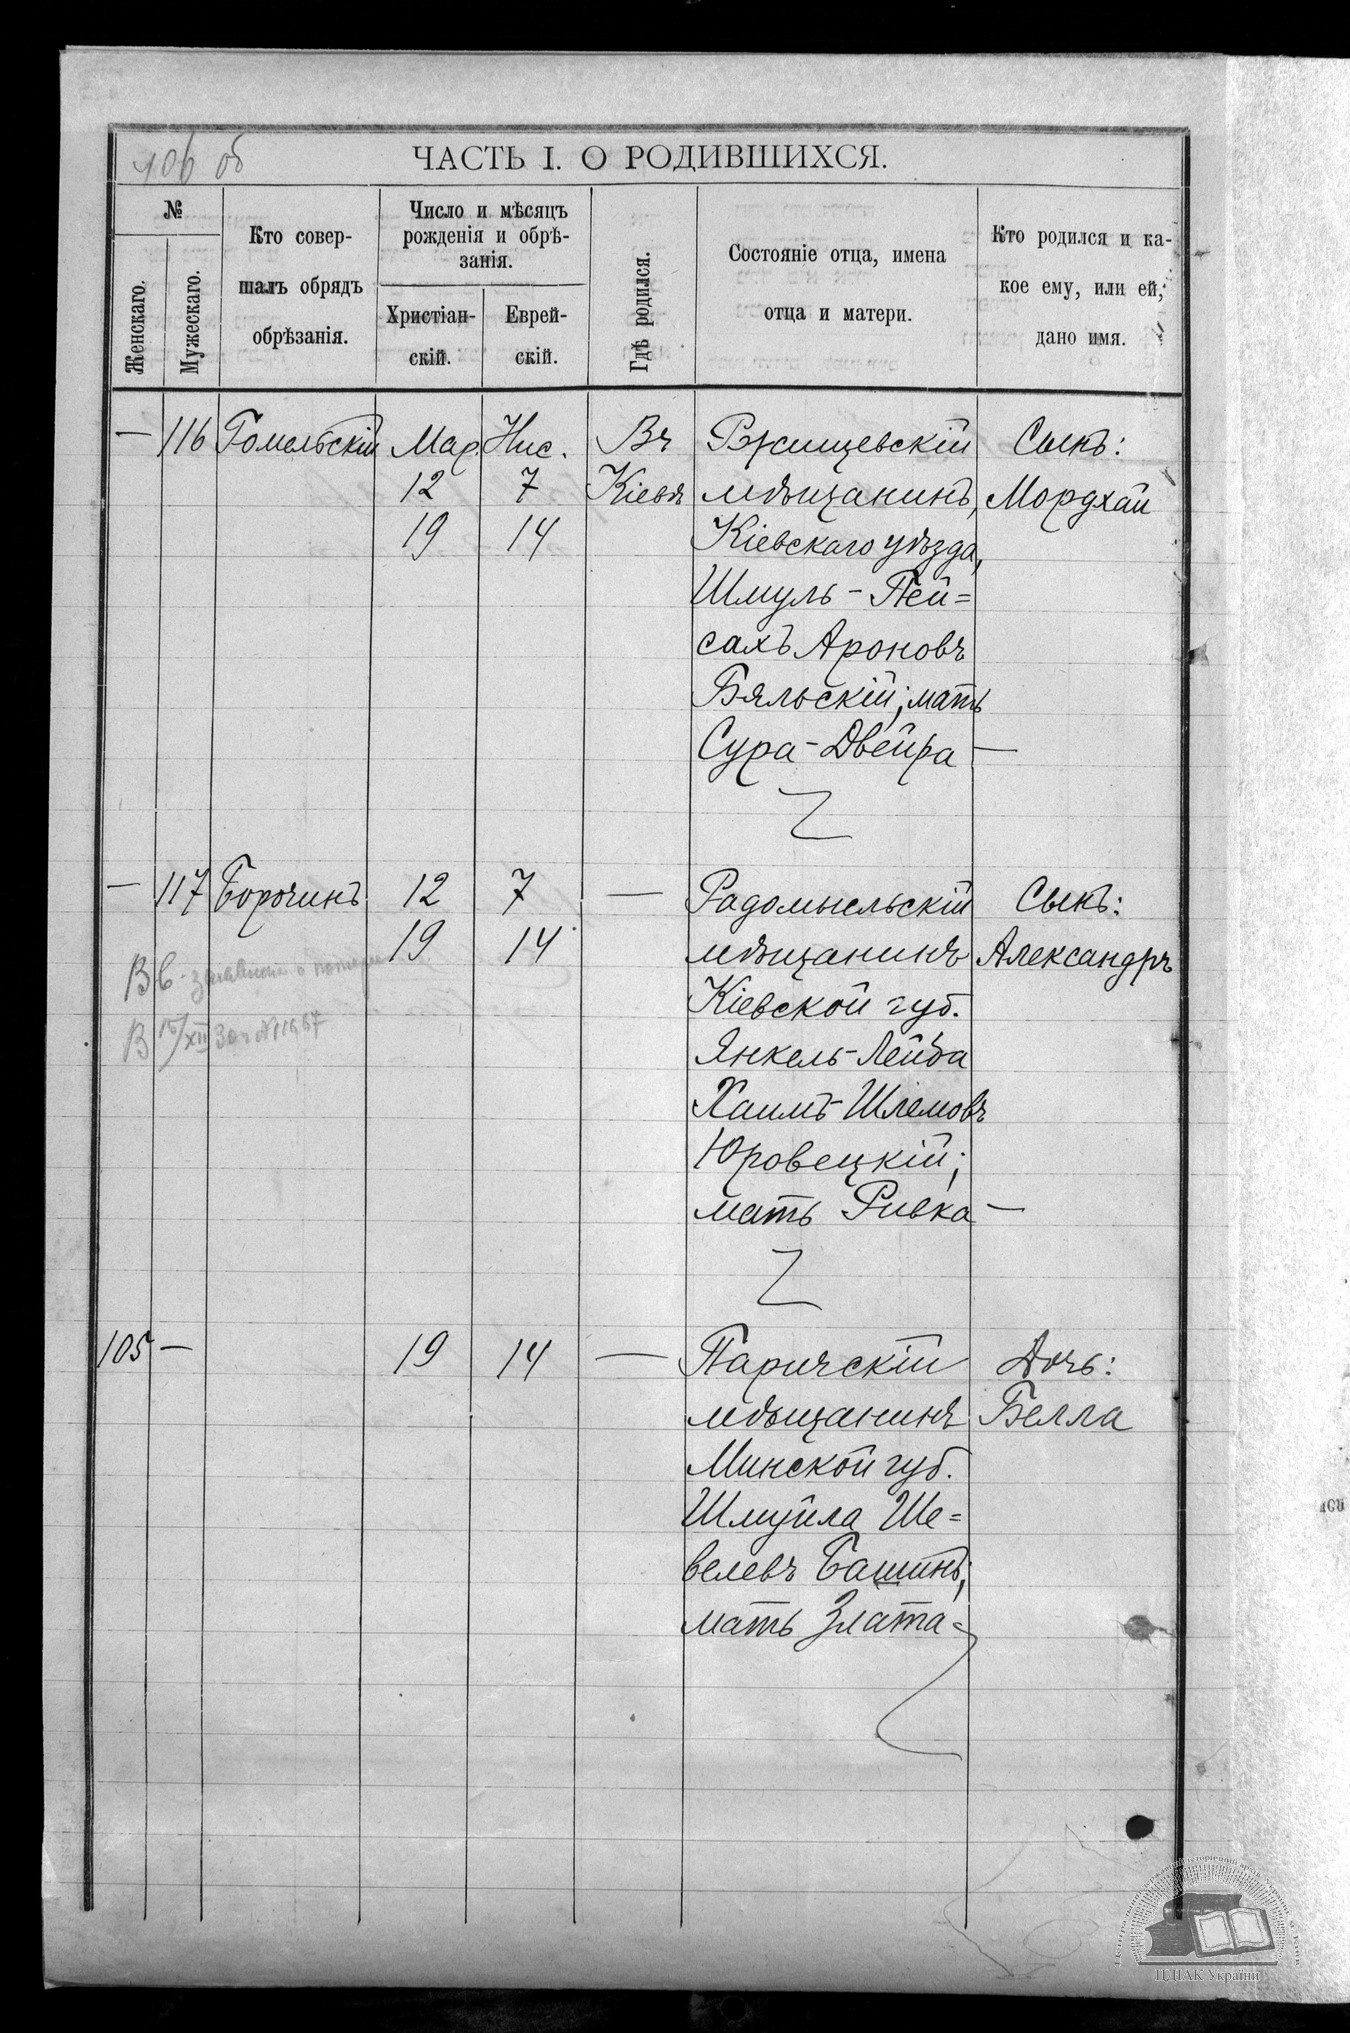 106 об
ЧАСТЬ I. О РОДИВШИХСЯ.
№
Женскаго.
Мужескаго.
Кто совер-
шалъ обрядъ
обрѣзанія.
Число и мѣсяцъ
рожденія и обрѣ-
занія.
Христіан-
скій.
Еврей-
скій.
Гдѣ родился.
Состояніе отца, имена
отца и матери.
Кто родился и ка-
кое ему, или ей,
дано имя.
— 116 Гомельскій Мар. Нис. Въ Ржищевскій Сынъ:
12 7 Кіевѣ мѣщанинъ, Мордхай
19 14 Кіевскаго уѣзда,
Шмуль-Пей=
сахъ Ароновъ
Бяльскій; мать
Сура-Двейра —
— 117 Борочинъ 12 7 — Радомысльскій Сынъ:
19 14 мѣщанинъ Александръ
Кіевской губ.
Янкель-Лейба
Хаимъ-Шлемовъ
Юровецкій;
мать Ривка —
В в - о
В 15/XII
105 — 19 14 — Паричскій Дочь:
мѣщанинъ Белла
Минской губ.
Шмуйла Ше=
велевъ Башинъ;
мать Злата-
ЦДІАК України